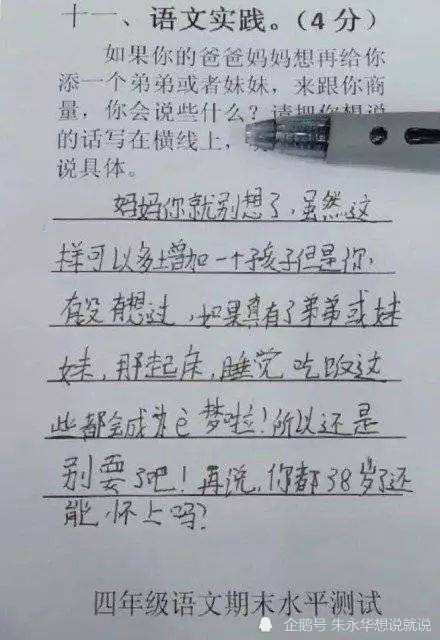 十一、语文实践。(4分)
如果你的爸爸妈妈想再给你
添一个弟弟或者妹妹，来跟你商
量，你会说些什么？请把你想说
的话写在横线上，
说具体。
妈妈你就别想了，虽然这
样可以多增加一个孩子但是你，
有没有想过，如果真有了弟弟或妹
妹，那起床，睡觉 吃饭这
些都会成为 梦啦！所以还是
别要了吧！再说，你都38岁了还
能 怀上吗？
四年级语文期末水平测试
企鹅号 朱永华想说就说